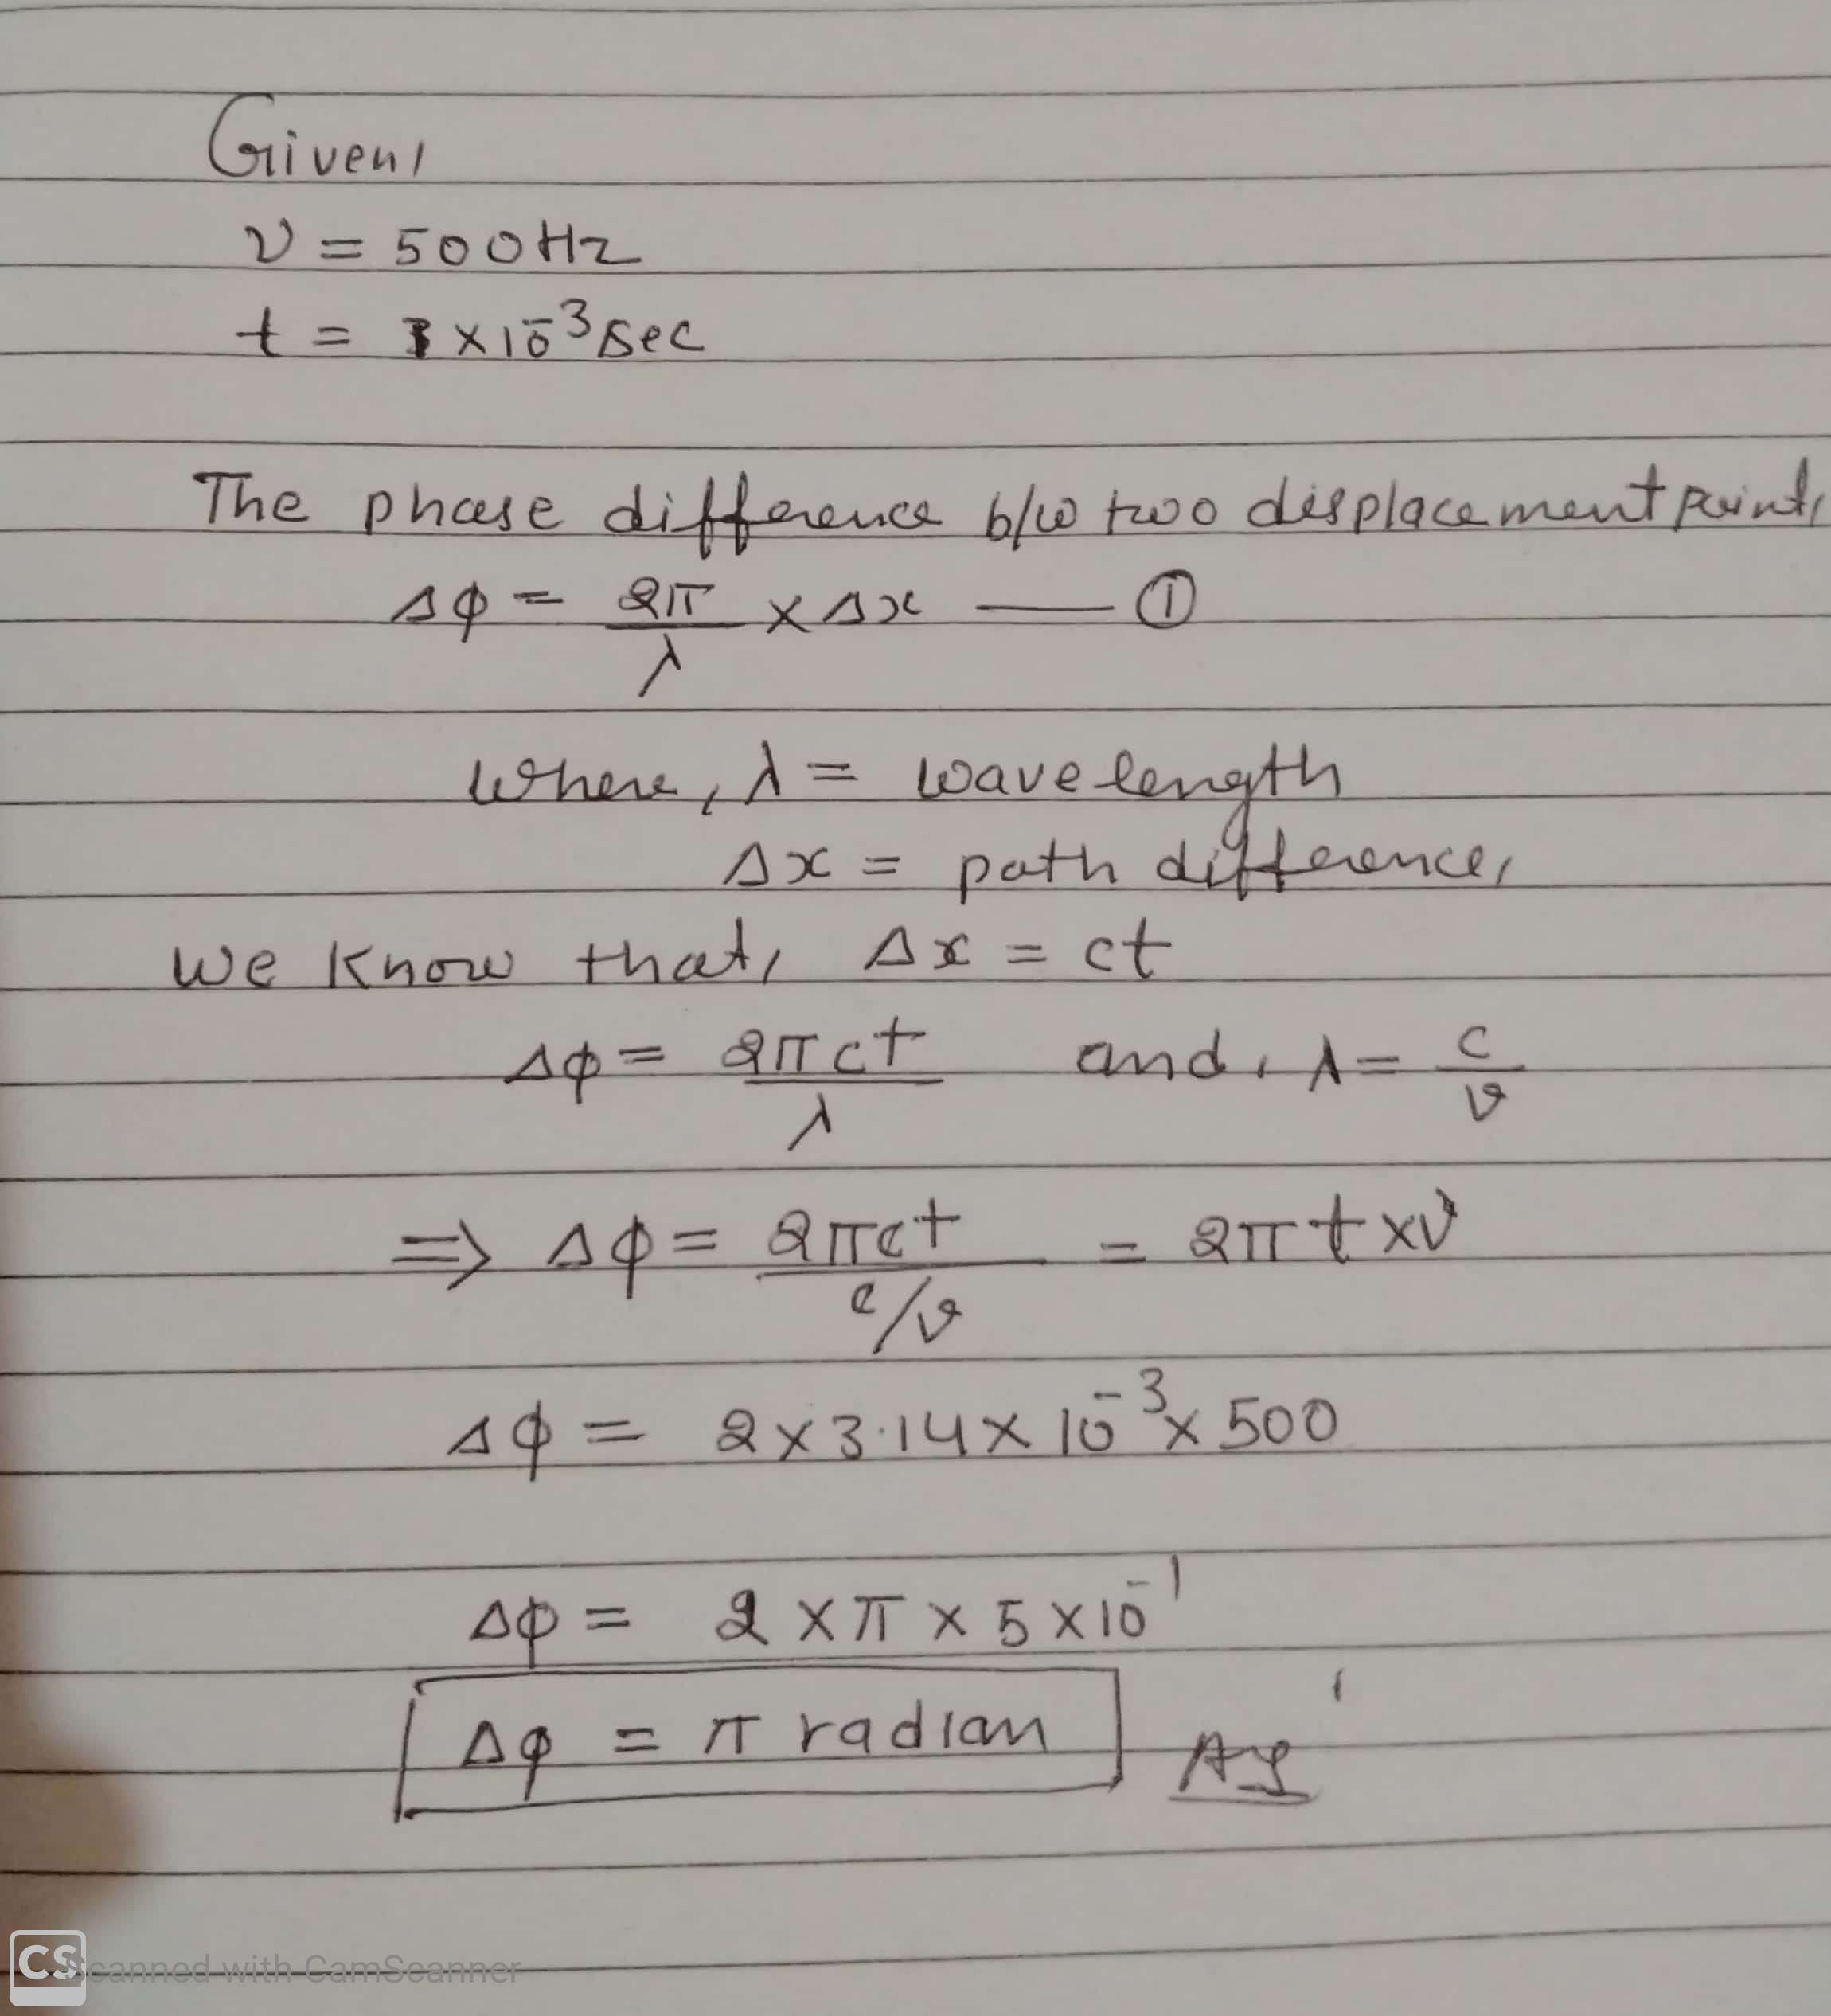 Given,
ν = 500Hz
t = 1 × 10⁻³ sec
The phase difference b/w two displacement point,
Δφ = 2π/λ × Δx — ①
where, λ = wavelength
Δx = path difference,
we know that, Δx = ct
Δφ = 2πct/λ and, λ = c/ν
⇒ Δφ = 2πct/c/ν = 2πt×ν
Δφ = 2×3.14×10⁻³×500
Δφ = 2×π×5×10⁻¹
Δφ = π radian
CS Scanned with CamScanner